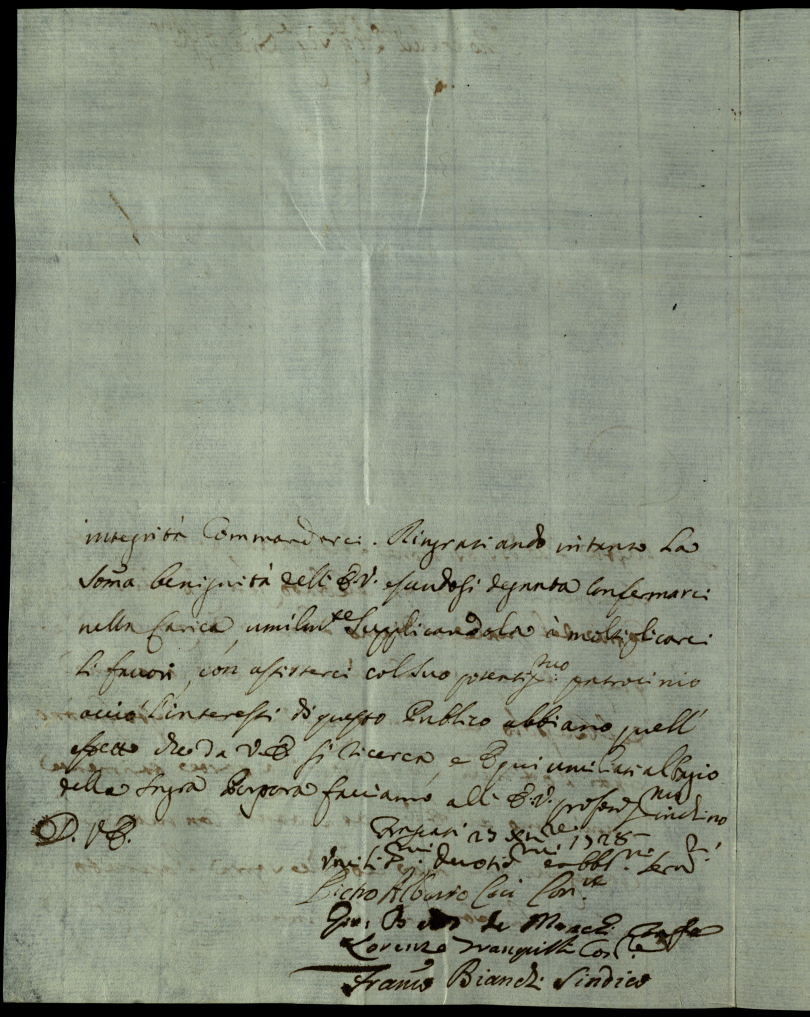 integrità Commandarci. Ringratiando intanto La
Soma benignità dell E.V. essendosi degnata Confermarci
nella Carica, umilmte Supplicandola à moltiplicarci
li favori, con assisterci col suo potentismo patrocinio
acciò l'interessi di questo Publico abbiano quell'
effetto che da V.E. si ricerca, e Qui umiliati al bagio
della Sagra Porpora facciamo all E.V. profondmo inchino
D. V.E.
Frascati 23 Xmbre 1728
Umilimi Devotimi et obblmi Serri
Pietro Ceci Conte
Gio. Batta de Marchi
Lorenzo Tranquilli Conte
Franco Bianchi Sindico